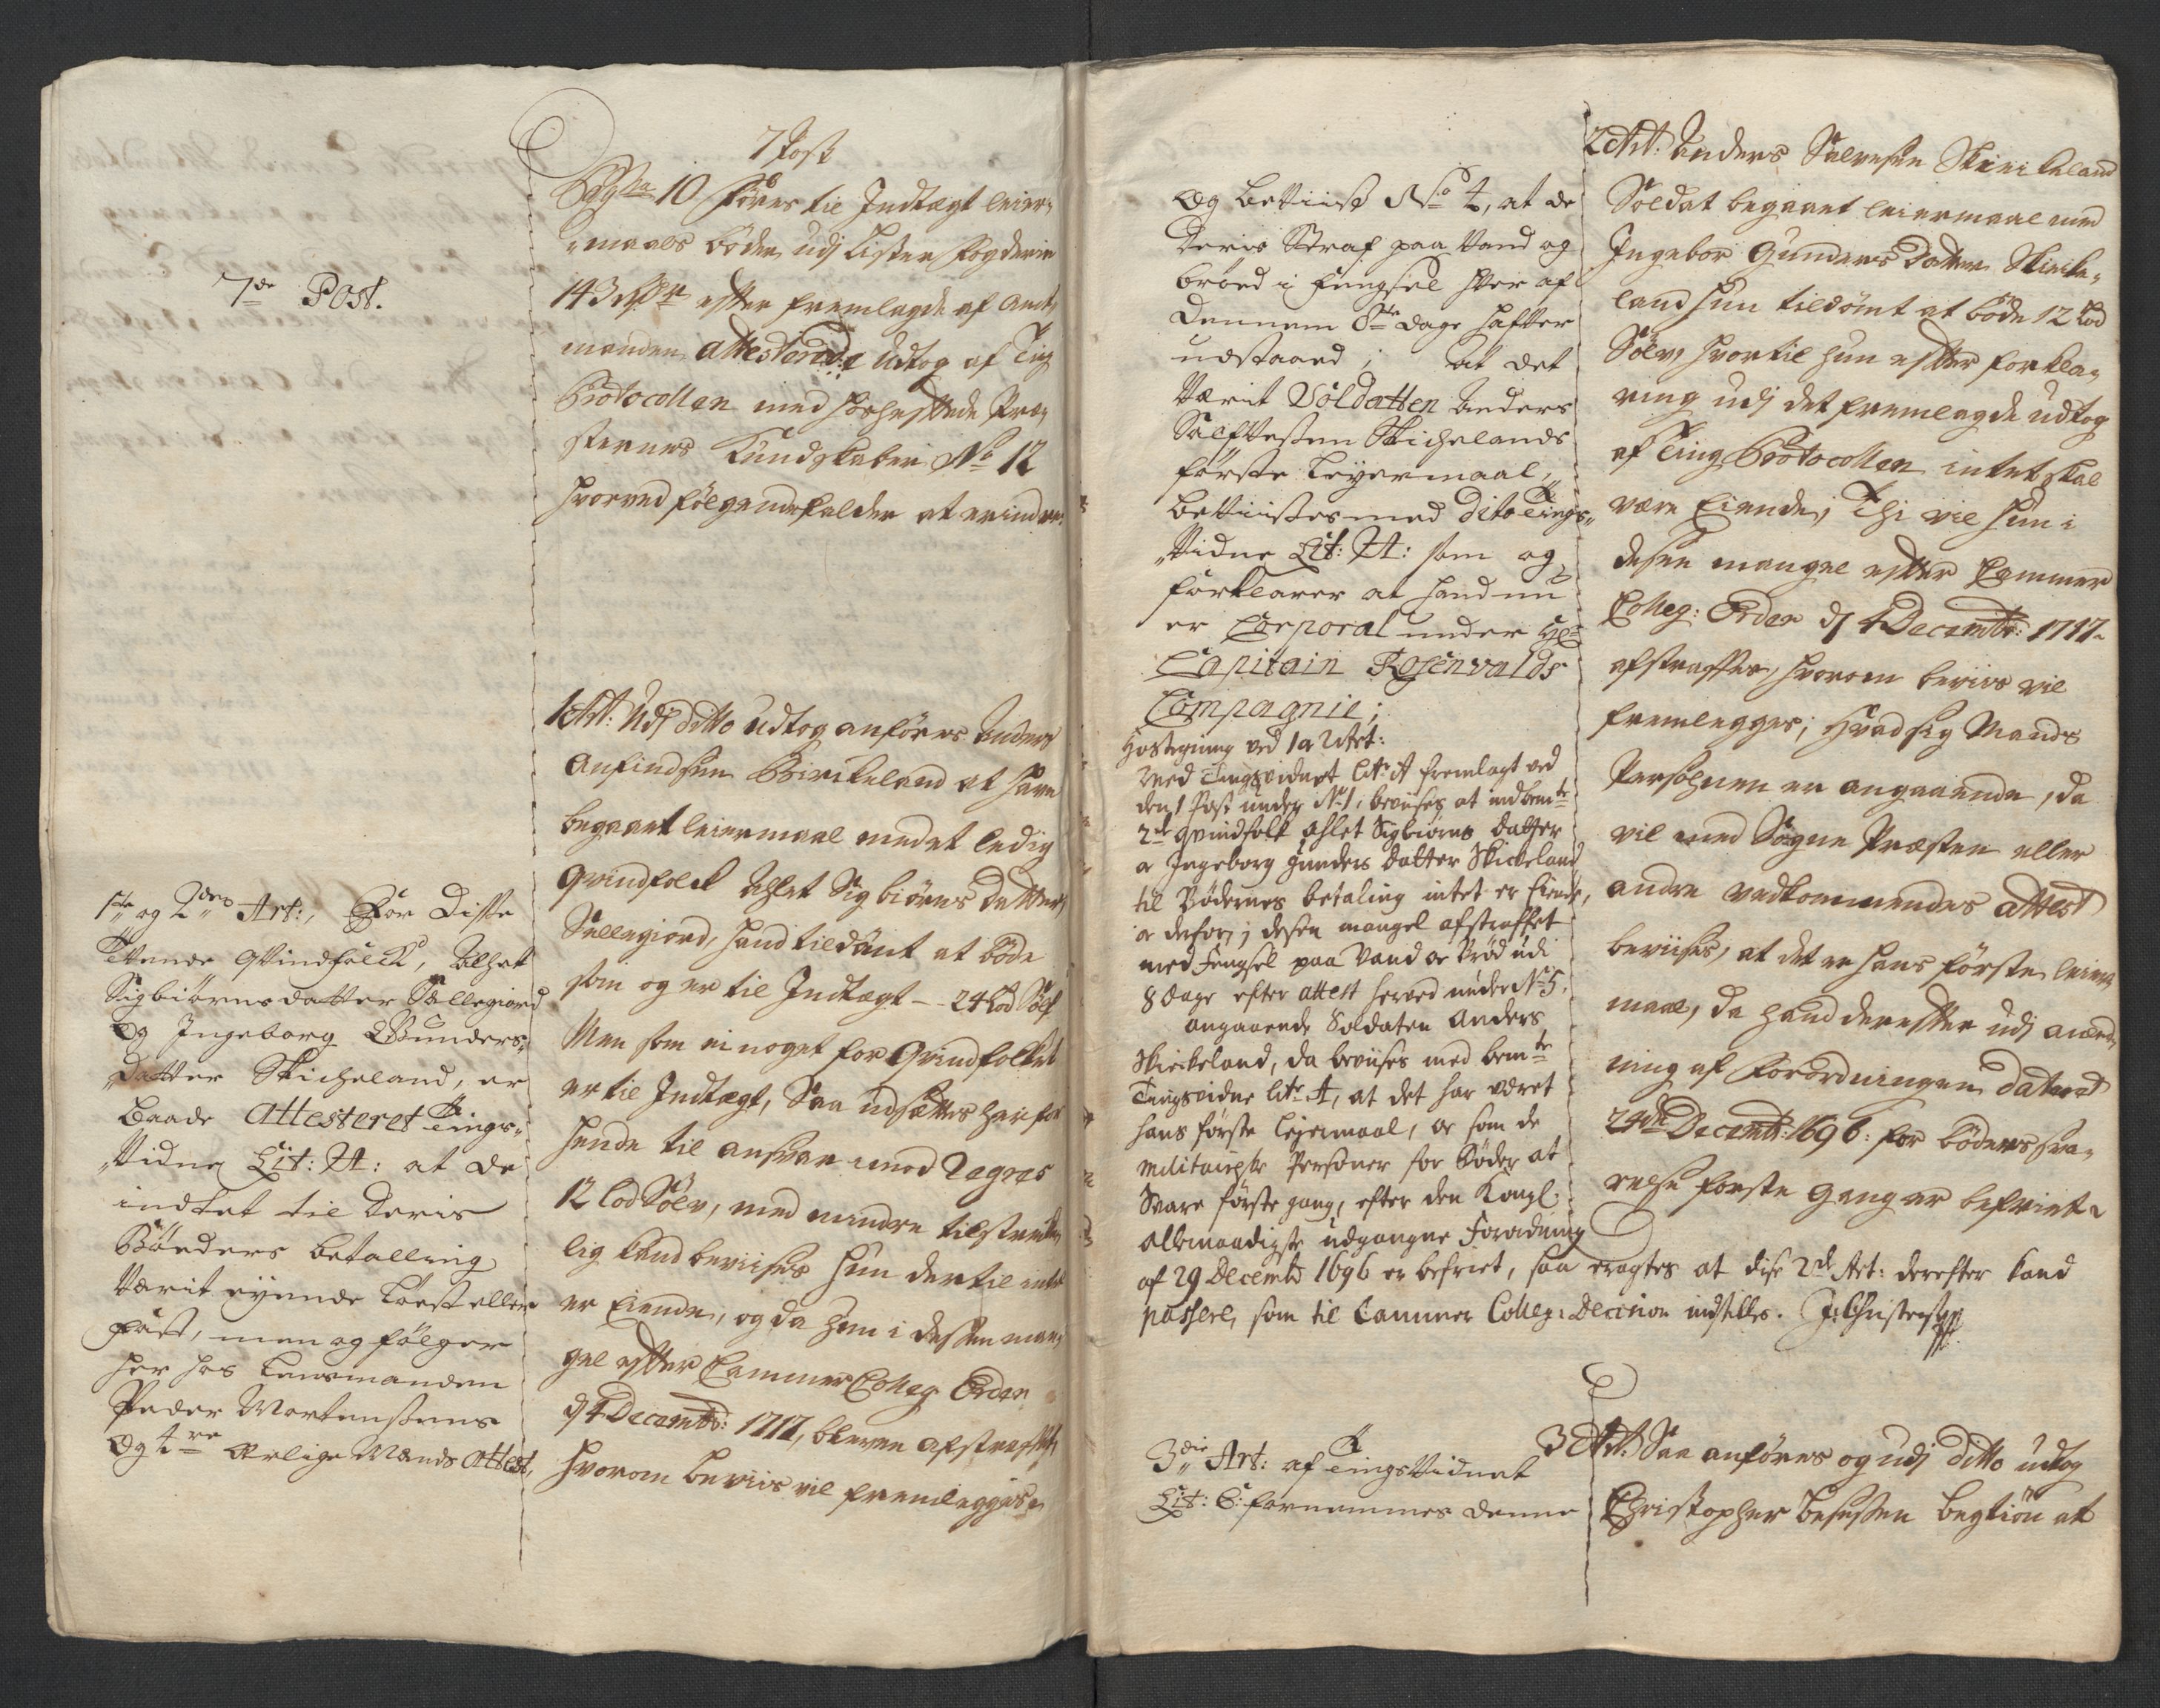 7de Post.
1te og 2den Art:, For Disse
Tvende Qvindfolck, Alhet
Sigbiørnsdatter Sællegiord
Og Ingeborg Gunders-
Datter Skicheland, er
baade Attesteret Tings-
Vidne Lit: A: at de
indtet til Deris
Bøeders betalling
Værit eyende Løest eller
fast, men og følger
her hos Lensmanden
Peder Mortensens
Og 4re Ærlige Mænds Attest,
7 Post
Pagina 10 føres til Indtægt leier-
maals bøder udj Lister fogderie
143 rdr efter fremlagde af Amt-
manden attesterede udtog af Ting
Protocollen med hoshæftede Præ-
sternes Kundskaber No 12
hvorved følgende falder at erindre
1 Art: Udj ditto udtog anføres Anders
Anfindsen Birkeland at have
begaaet leiermaal med et ledig
Qvindfolck Alhet Sigbiørns Datter
Sellegiord, hand tildømt at bøde
som og er til Indtægt - 24 Lod Sølf
Men som ei noget for Qvindfolket
er til Indtægt, Saa udsættes her for
hende til ansvar imod Regres
12 Lod Sølv, med mindre tilstrecke-
lig kand beviises hun dertil intet
er Eiende, og da hun i dessen man-
gel efter Cammer Colleg: Order
dj 4 Decembr: 1717, bleven afstraffet,
hvorom beviis vil fremlegges
Og beviist No 4, at de
Deris Straf paa Vand og
brød i fengsel hver af
Dennem 8te Dage hafver
udstaaed; at det
Værit Soldatten Anders
Salfvesen Skichelands
første Leyermaal,
beviises med dito Tings-
Vidne Lit: A: som og
forklarer at hand nu
er Corporal under Hr
Capitain Rosenvalds
Compagnie;
Hostegning ved 1 a 2 Art:
Med Tingsvidnet Litr A fremlagt ved
den 1 Post under No 1, beviises at indbemte
2de Qvindfolk Ahlet Sigbiørns Datter
og Ingeborg Gunders Datter Skickeland
til Bødernes betaling intet er Eiende,
og derfor i desen mangel afstraffet
med Fengsel paa Vand og Brød udi
8 dage efter attest herved under No 5.
angaaende Soldaten Anders
Skickeland, da beviises med bemte
Tingsvidne Litr A, at det har været
hans første lejermaal, og som de
Militairiske Personer for Bøder at
Svare første gang, efter den Kongl:
allernaadigste udgangne Forordning
af 29 Decembr 1696 er befriet, saa eragtes at disse 2de Art: derefter kand
passere, som til Cammer Colleg: Decision indstilles.
3die Art: af Tingsvidnet
Lit: C: fornemmes denne
2 Art: Anders Salvesen Skickeland
Soldat begaaet leiermaal med
Ingebor Gunders Datter Skicke-
land hun tildømt at bøde 12 Lod
Sølv, hvortil hun efter forkla-
ring udj det fremlagde udtog
af Ting Protocollen intet skal
være Eiende; Thi vil hun i
desen mangel efter Cammer
Colleg: Order dj 4 Decembr: 1717
afstraffes, hvorom beviis vil
fremlegges; Hvad sig Mands
Persohnen er angaaende, da
vil med Sogne Præsten eller
andre vedkommendes attest
beviises, at det er hans første leier-
maal, da hand derefter udj anled-
ning af Forordningen dateret
29de Decembr: 1696: for bøders sva-
relse første Gang er befriet
3 Art: Saa anføres og udj ditto udtog
Christopher